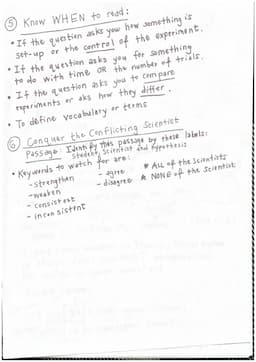 ⑤ Know WHEN to read:
• If the question asks you how something is
set-up or the control of the experiment.
• If the question asks you for something
to do with time OR the number of trials.
• If the question asks you to compare
experiments or aks how they differ.
• To define vocabulary or terms
⑥ Conquer the Conflicting Scientist
Passage: Identify this passage by these labels:
Student, Scientist and Hypothesis
• Keywords to watch for are:
- strengthen
- weaken
- consistent
- inconsistent
- agree
- disagree
* ALL of the scientists
* NONE of the scientist